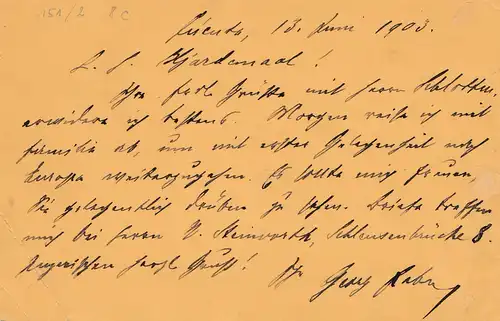 151/2 8 C
Cúcuta, 13. Juni 1903.
L. H. Hjardemaal!
Ihre frdl. Grüsse mit Herrn
erwidere ich bestens. Morgen reise ich mit
Familie ab, um mit erster Gelegenheit nach
Europa weiterzugehen. Es sollte mich freuen,
Sie gelegentlich drüben zu sehen. Briefe treffen
mich bei Herrn Schleusenbrücke 8.
Inzwischen herzl. Gruss! Ihr Georg